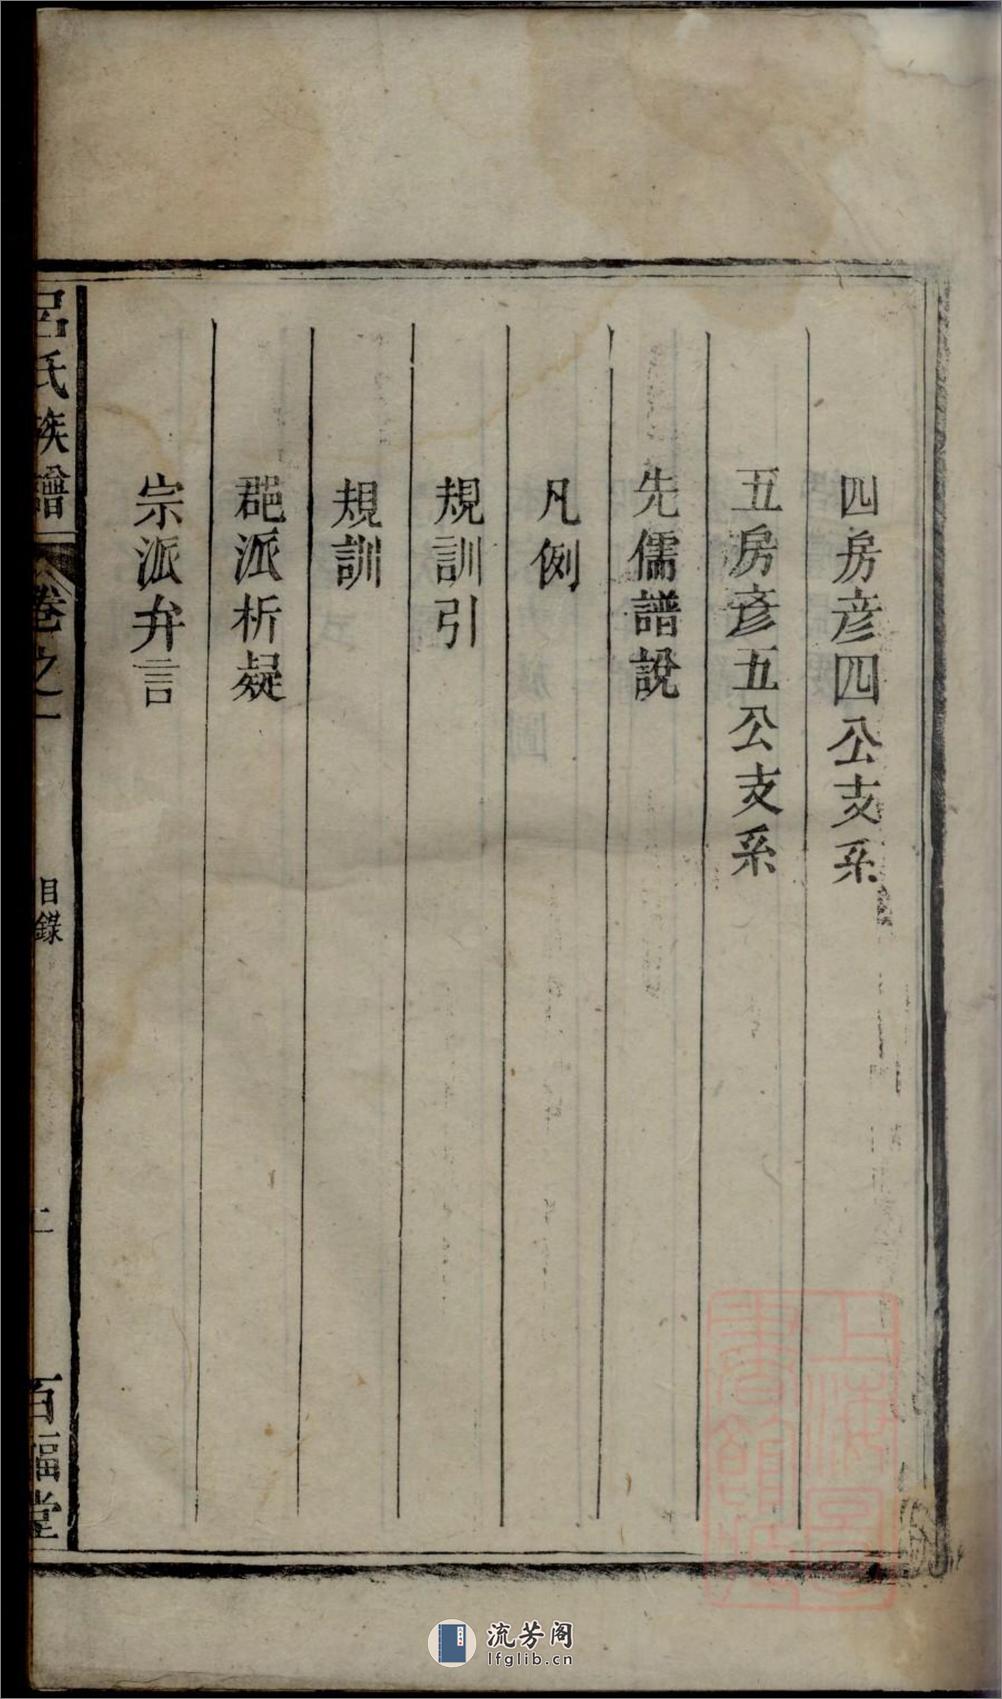 四房彦四公支系
五房彦五公支系
先儒譜說
凡例
規訓引
規訓
派析疑
宗派弁言
呂氏族譜
卷之一
目錄
二
百福堂
上海圖書館藏
流芳阁
lfglib.cn